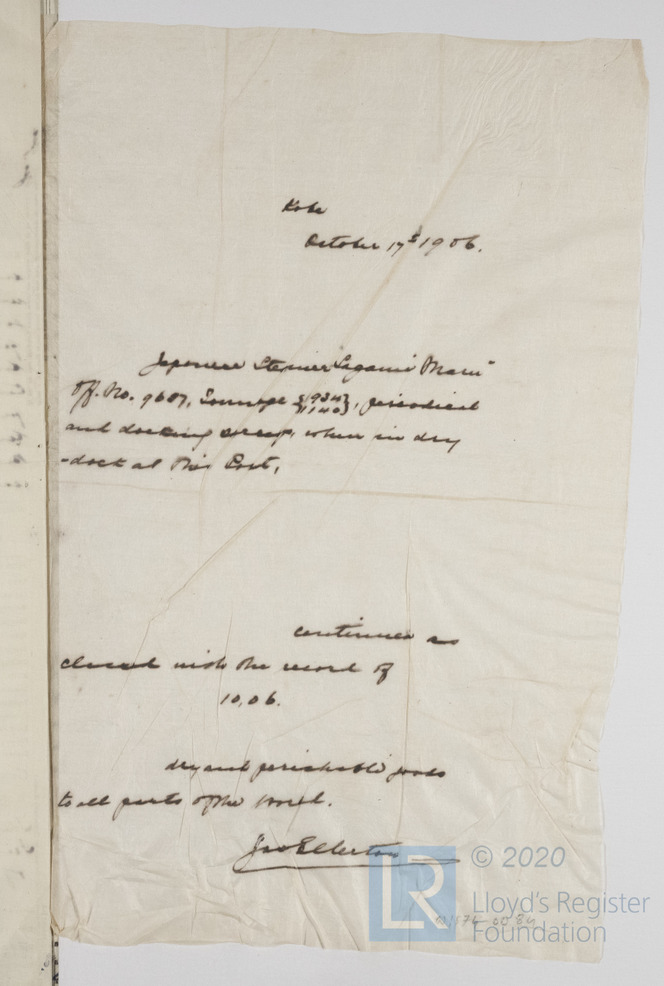 Kobe
October 17th 1906.
Japanese Steamer "Sagami Maru"
Off. No. 9607, Tonnage {1934 / 1140}, periodical
and docking, when in dry
-dock at this Port,
continues as
classed with the record of
10,06.
dry and perishable goods
to all parts of the World.
Jas Ellerton
© 2020
LR
Lloyd's Register
Foundation